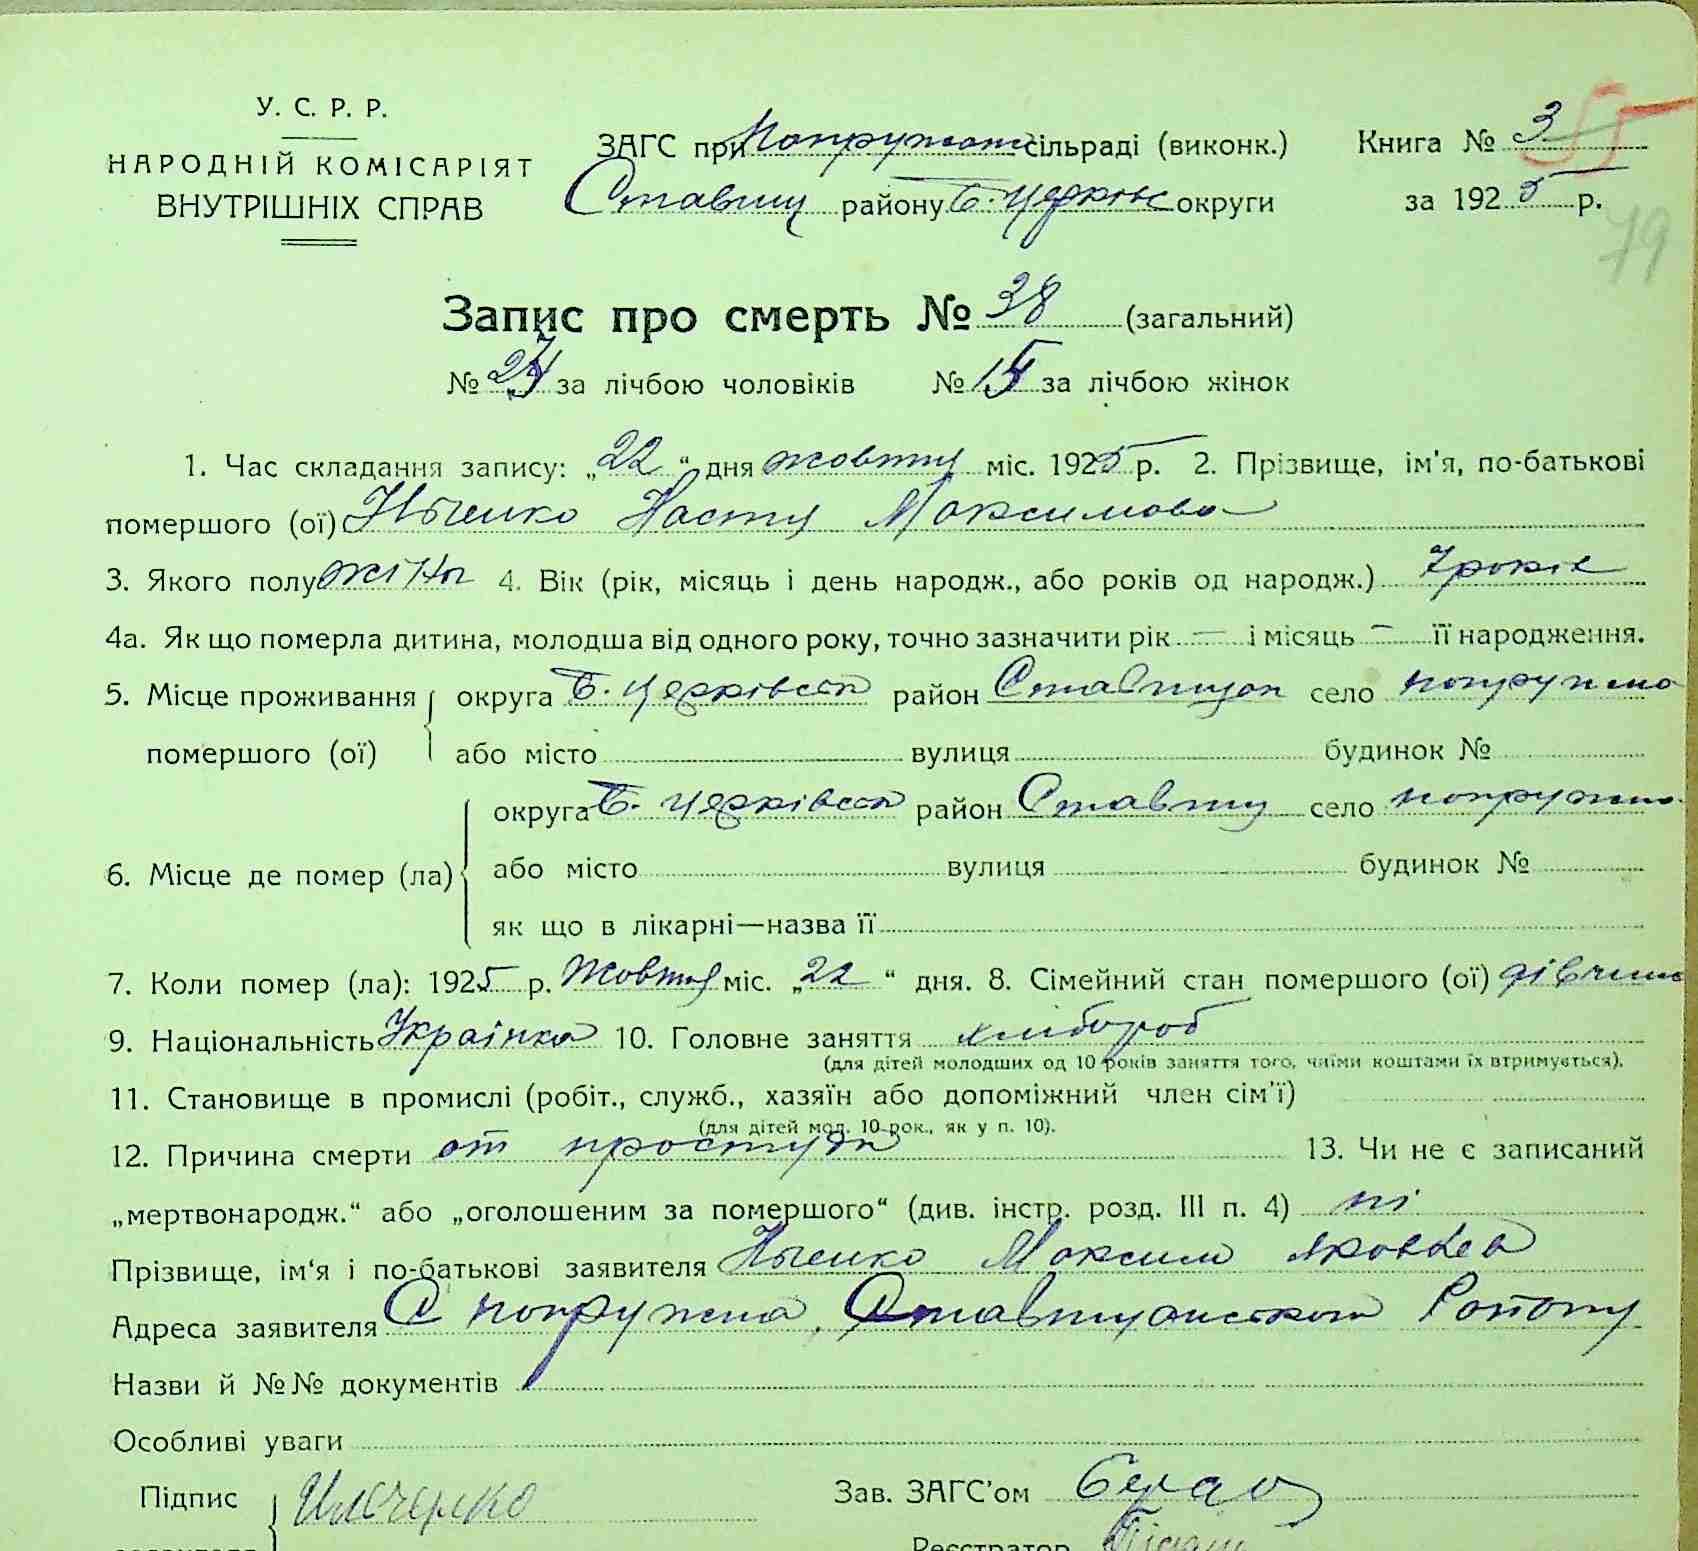 У. С. Р. Р.
НАРОДНІЙ КОМІСАРІЯТ
ВНУТРІШНІХ СПРАВ
ЗАГС при Попружан сільраді (виконк.)
Ставищ району Б. Церків округи
Книга № 3
за 1925 р.
79
Запис про смерть № 38 (загальний)
№ за лічбою чоловіків № за лічбою жінок
1. Час складання запису: „22“ дня жовтня міс. 1925 р. 2. Прізвище, ім'я, по-батькові
помершого (ої) Настя Максимова
3. Якого полу жіны 4. Вік (рік, місяць і день народж., або років од народж.) 7 років
4а. Як що померла дитина, молодша від одного року, точно зазначити рік — і місяць — її народження.
5. Місце проживання помершого (ої) округа Б. Церківськ район Ставищан село попружна
або місто вулиця будинок №
6. Місце де помер (ла) округа Б. Церківськ район Ставищ село попружна
або місто вулиця будинок №
як що в лікарні—назва її
7. Коли помер (ла): 1925 р. Жовтня міс. „22“ дня. 8. Сімейний стан помершого (ої) дівчина
9. Національність Українка 10. Головне заняття хлібороб
(для дітей молодших од 10 років заняття того, чиїми коштами їх втримується).
11. Становище в промислі (робіт., служб., хазяїн або допоміжний член сім'ї)
(для дітей мол. 10 рок., як у п. 10).
12. Причина смерти от простуди 13. Чи не є записаний
„мертвонародж.“ або „оголошеним за помершого“ (див. інстр. розд. III п. 4) ні
Прізвище, ім'я і по-батькові заявителя Максим Яковлев
Адреса заявителя С попружна, Району
Назви й №№ документів
Особливі уваги
Підпис заявителя Ильченко Зав. ЗАГС'ом
Реєстратор